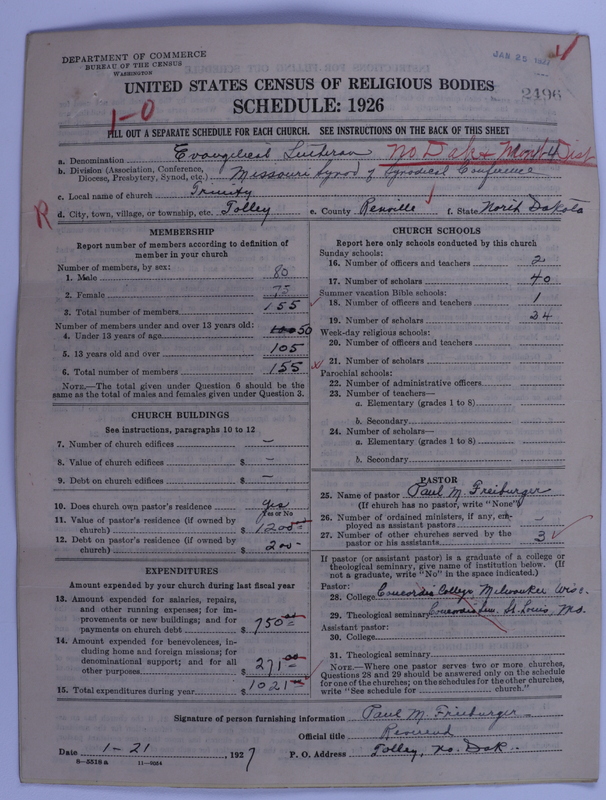 DEPARTMENT OF COMMERCE
BUREAU OF THE CENSUS
WASHINGTON
JAN 25 1927
2496
UNITED STATES CENSUS OF RELIGIOUS BODIES
SCHEDULE: 1926
1-0
FILL OUT A SEPARATE SCHEDULE FOR EACH CHURCH. SEE INSTRUCTIONS ON THE BACK OF THIS SHEET
a. Denomination Evangelical Lutheran No Dak & Mont Dist
b. Division (Association, Conference, Diocese, Presbytery, Synod, etc.) Missouri Synod of Synodical Conference
c. Local name of church Trinity
R
d. City, town, village, or township, etc. Tolley e. County Renville f. State North Dakota
MEMBERSHIP
Report number of members according to definition of
member in your church
Number of members, by sex:
1. Male 80
2. Female 75
3. Total number of members 155
Number of members under and over 13 years old:
4. Under 13 years of age 50
5. 13 years old and over 105
6. Total number of members 155
NOTE.—The total given under Question 6 should be
same as the total of males and females given under Question 3.
CHURCH BUILDINGS
See instructions, paragraphs 10 to 12
7. Number of church edifices –
8. Value of church edifices $ –
9. Debt on church edifices $ –
10. Does church own pastor's residence yes
Yes or No
11. Value of pastor's residence (if owned by
church) $ 1200
12. Debt on pastor's residence (if owned by
church) $ 200
EXPENDITURES
Amount expended by your church during last fiscal year
13. Amount expended for salaries, repairs,
and other running expenses; for im-
provements or new buildings; and for
payments on church debt $ 750
14. Amount expended for benevolences, in-
cluding home and foreign missions; for
denominational support; and for all
other purposes $ 271
15. Total expenditures during year $ 1021
CHURCH SCHOOLS
Report here only schools conducted by this church
Sunday schools:
16. Number of officers and teachers 2
17. Number of scholars 40
Summer vacation Bible schools:
18. Number of officers and teachers 1
19. Number of scholars 24
Week-day religious schools:
20. Number of officers and teachers
21. Number of scholars
Parochial schools:
22. Number of administrative officers
23. Number of teachers—
a. Elementary (grades 1 to 8)
b. Secondary
24. Number of scholars—
a. Elementary (grades 1 to 8)
b. Secondary
PASTOR
25. Name of pastor Paul M. Freiburger
(If church has no pastor, write "None")
26. Number of ordained ministers, if any, em-
ployed as assistant pastors –
27. Number of other churches served by the
pastor or his assistants 3
If pastor (or assistant pastor) is a graduate of a college or
theological seminary, give name of institution below. (If
not a graduate, write "No" in the space indicated.)
Pastor:
28. College Concordia College Milwaukee Wisc.
29. Theological seminary Concordia Sem. St. Louis, Mo.
Assistant pastor:
30. College
31. Theological seminary
NOTE.—Where one pastor serves two or more churches,
Questions 28 and 29 should be answered only on the schedule
for one of the churches; on the schedules for the other churches,
write "See schedule for church."
Signature of person furnishing information Paul M. Freiburger
Official title Reverend
Date 1-21, 1927 P. O. Address Tolley, No. Dak.
8-5518 a 11-9034